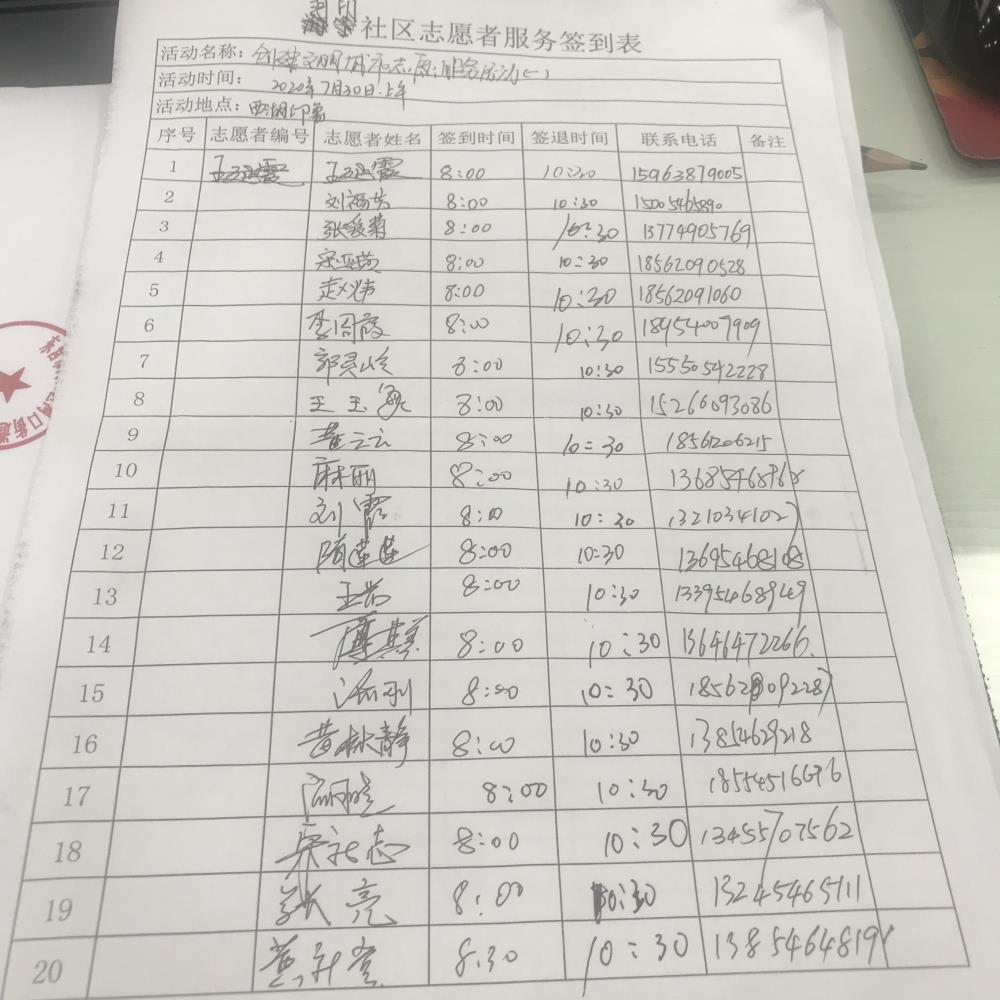 社区志愿者服务签到表
活动名称：创建文明城市志愿服务活动(一)
活动时间：2020年7月30日.上午
活动地点：西湖印象
序号 志愿者编号 志愿者姓名 签到时间 签退时间 联系电话 备注
1 8:00 10:30 15963879005
2 8:00 10:30 15005465890
3 张爱菊 8:00 10:30 13774905769
4 8:00 10:30 18562090528
5 8:00 10:30 18562091060
6 8:00 10:30 18954007909
7 郭灵 8:00 10:30 15550542228
8 王玉 8:00 10:30 15266093086
9 董云云 8:00 10:30 18561206215
10 麻丽 8:00 10:30
11 刘霞 8:00 10:30 13210341027
12 隋莲莲 8:00 10:30 13695468108
13 8:00 10:30 13395468949
14 8:00 10:30 13646472266
15 8:00 10:30
16 黄林静 8:00 10:30 13854629218
17 8:00 10:30 18554516696
18 宋社志 8:00 10:30 13455707562
19 张亮 8:00 10:30 13245465711
20 8:30 10:30